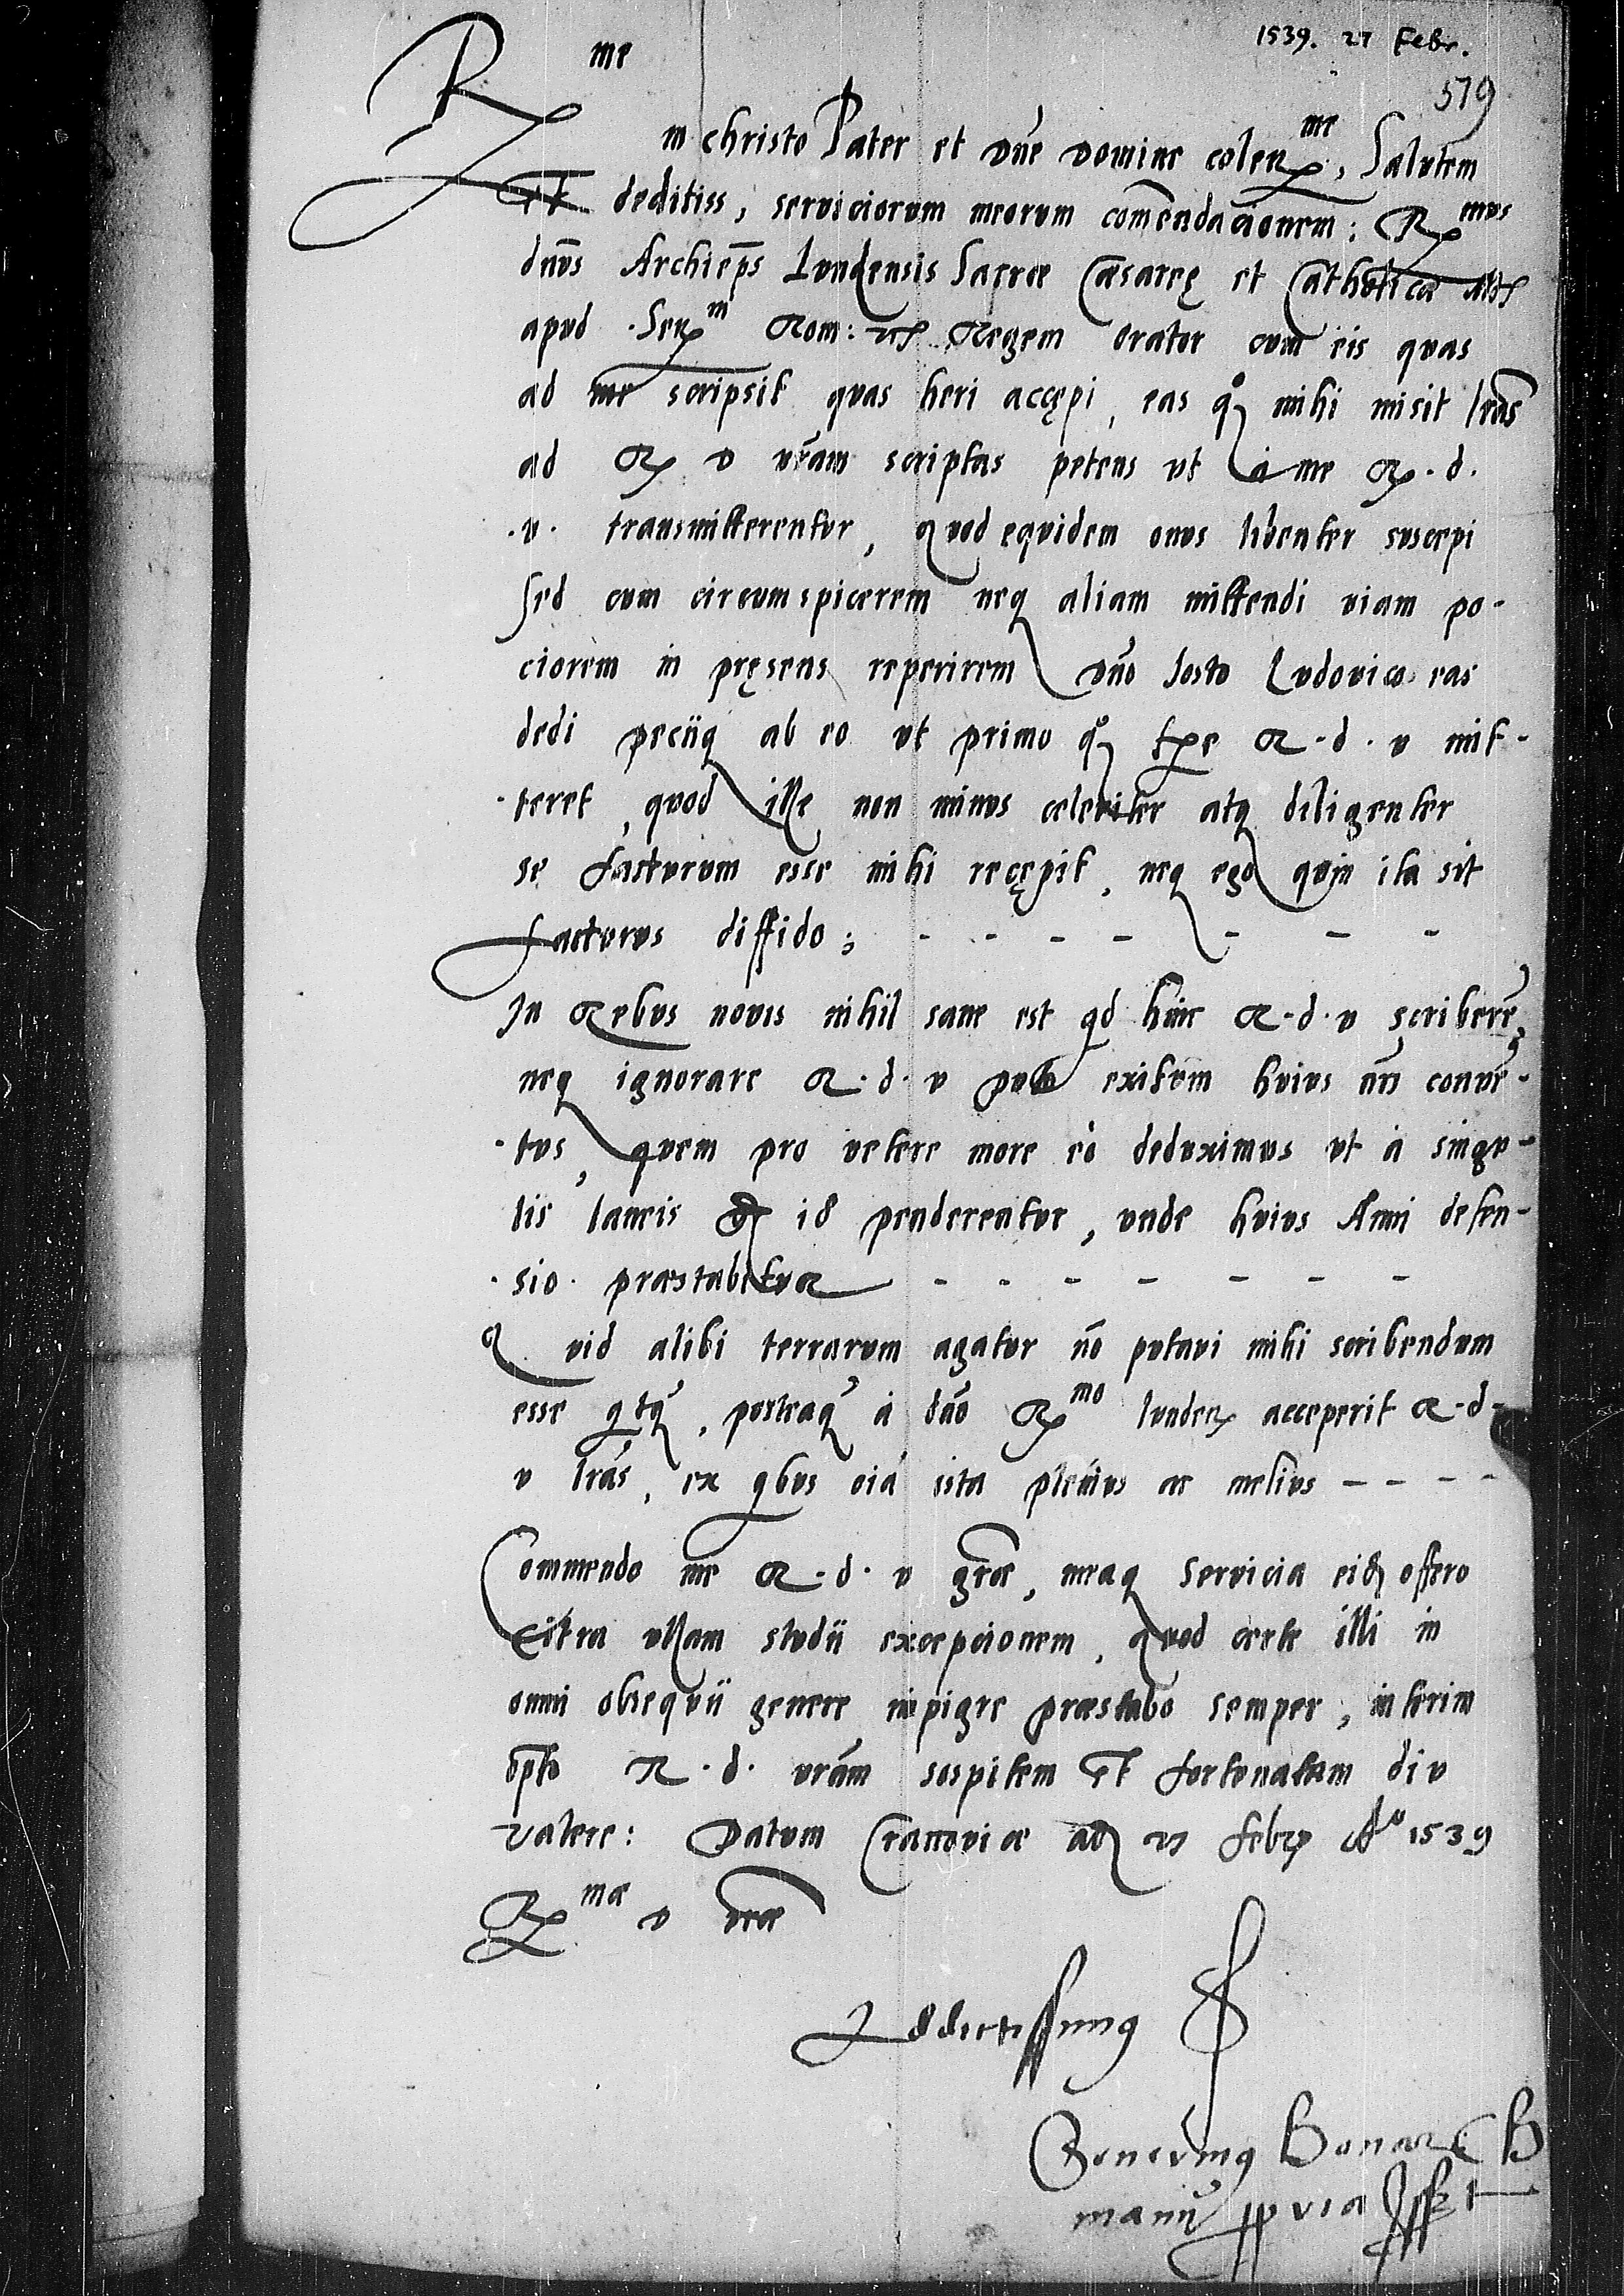 1539. 27 Febr.
579
Rme
in christo Pater et dne domine colen me, Salutem
et deditiss, seruiciorum meorum comendacionem: R mus
dnus Archieps Lundensis Sacrae Cæsareę et Catholicæ Mtis
apud Ser m Rom: Regem Orator cum eis quas
ad me scripsit quas heri accępi, eas qo mihi misit lras
ad R D vram scriptas petens ut à me R. d.
.v. transmitterentur, quod equidem onus libenter suscepi
sed cum circumspicerem neq aliam mittendi uiam po-
ciorem in pręsens reperirem dno Josto Ludouico eas
dedi peciiq ab eo ut primo qo tpe R. d. v mit-
teret, quod ille non minus celeriter atq diligenter
se facturum esse mihi recępit, neq ego quin ita sit
facturus diffido; - - - - - - -
In Rebus nouis nihil sane est qd hinc R. d. v scriberē,
neq ignorare R. d. v puto exitum huius nri conue-
tus, quem pro uetere more eò deduximus ut à singu-
lis laneis gr 18 penderentur, unde huius Anni defen-
sio præstabitur - - - - - - -
Quid alibi terrarum agatur nō putaui mihi scribendum
esse, posteaq à dno R mo lunden acceperit R. d.
v lras, ex qbus oia ista plenius ac melius - - - -
Commendo me R. d. v græ, meaq seruicia eid offero
Citra ullam studii excepcionem, quod certe illi in
omni obsequii genere impigre præstabo semper, interim
opto R. d. vram sospitem et fortunatam diu
valere: Datum Cracouiæ 27 febr Ao 1539
R mæ D vræ
Addictissimus
Seuerinus Bonar C B
manu ppria sspt